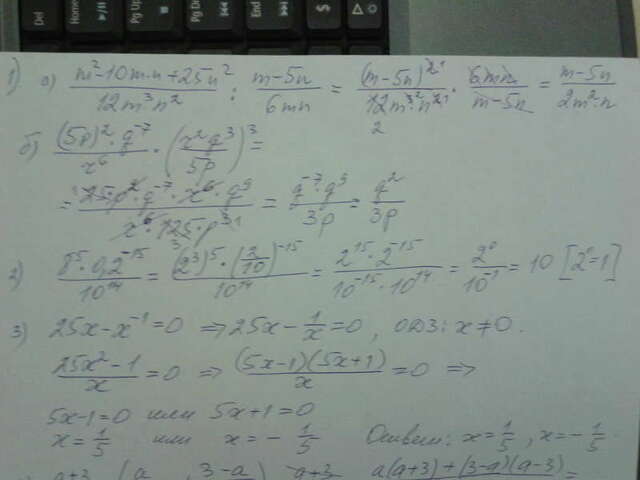 1) а) m²-10mn+25n² / 12m³n² : m-5n / 6mn = (m-5n)² / 12m³n² · 6mn / m-5n = m-5n / 2m²n
2
б) (5p)²·q⁻⁷ / x⁶ · (x²q³ / 5p)³ =
= 25p²q⁻⁷·x⁶q⁹ / x⁶·125p³ = q⁻⁷·q⁹ / 5p = q² / 5p
2) 8⁵·0,2⁻¹⁵ / 10¹⁴ = (2³)⁵·(2/10)⁻¹⁵ / 10¹⁴ = 2¹⁵·2⁻¹⁵ / 10⁻¹⁵·10¹⁴ = 2⁰ / 10⁻¹ = 10 [2⁰=1]
3) 25x-x⁻¹=0 ⇒ 25x-1/x=0, ОДЗ: x≠0.
25x²-1 / x = 0 ⇒ (5x-1)(5x+1) / x = 0 ⇒
5x-1=0 или 5x+1=0
x=1/5 или x=-1/5 Ответ: x=1/5, x=-1/5.
a+3 / a 3-a a+3 a(a+3)+(3-a)(a-3) =
Del
Home
Pg Up
Pg Dn
End
$